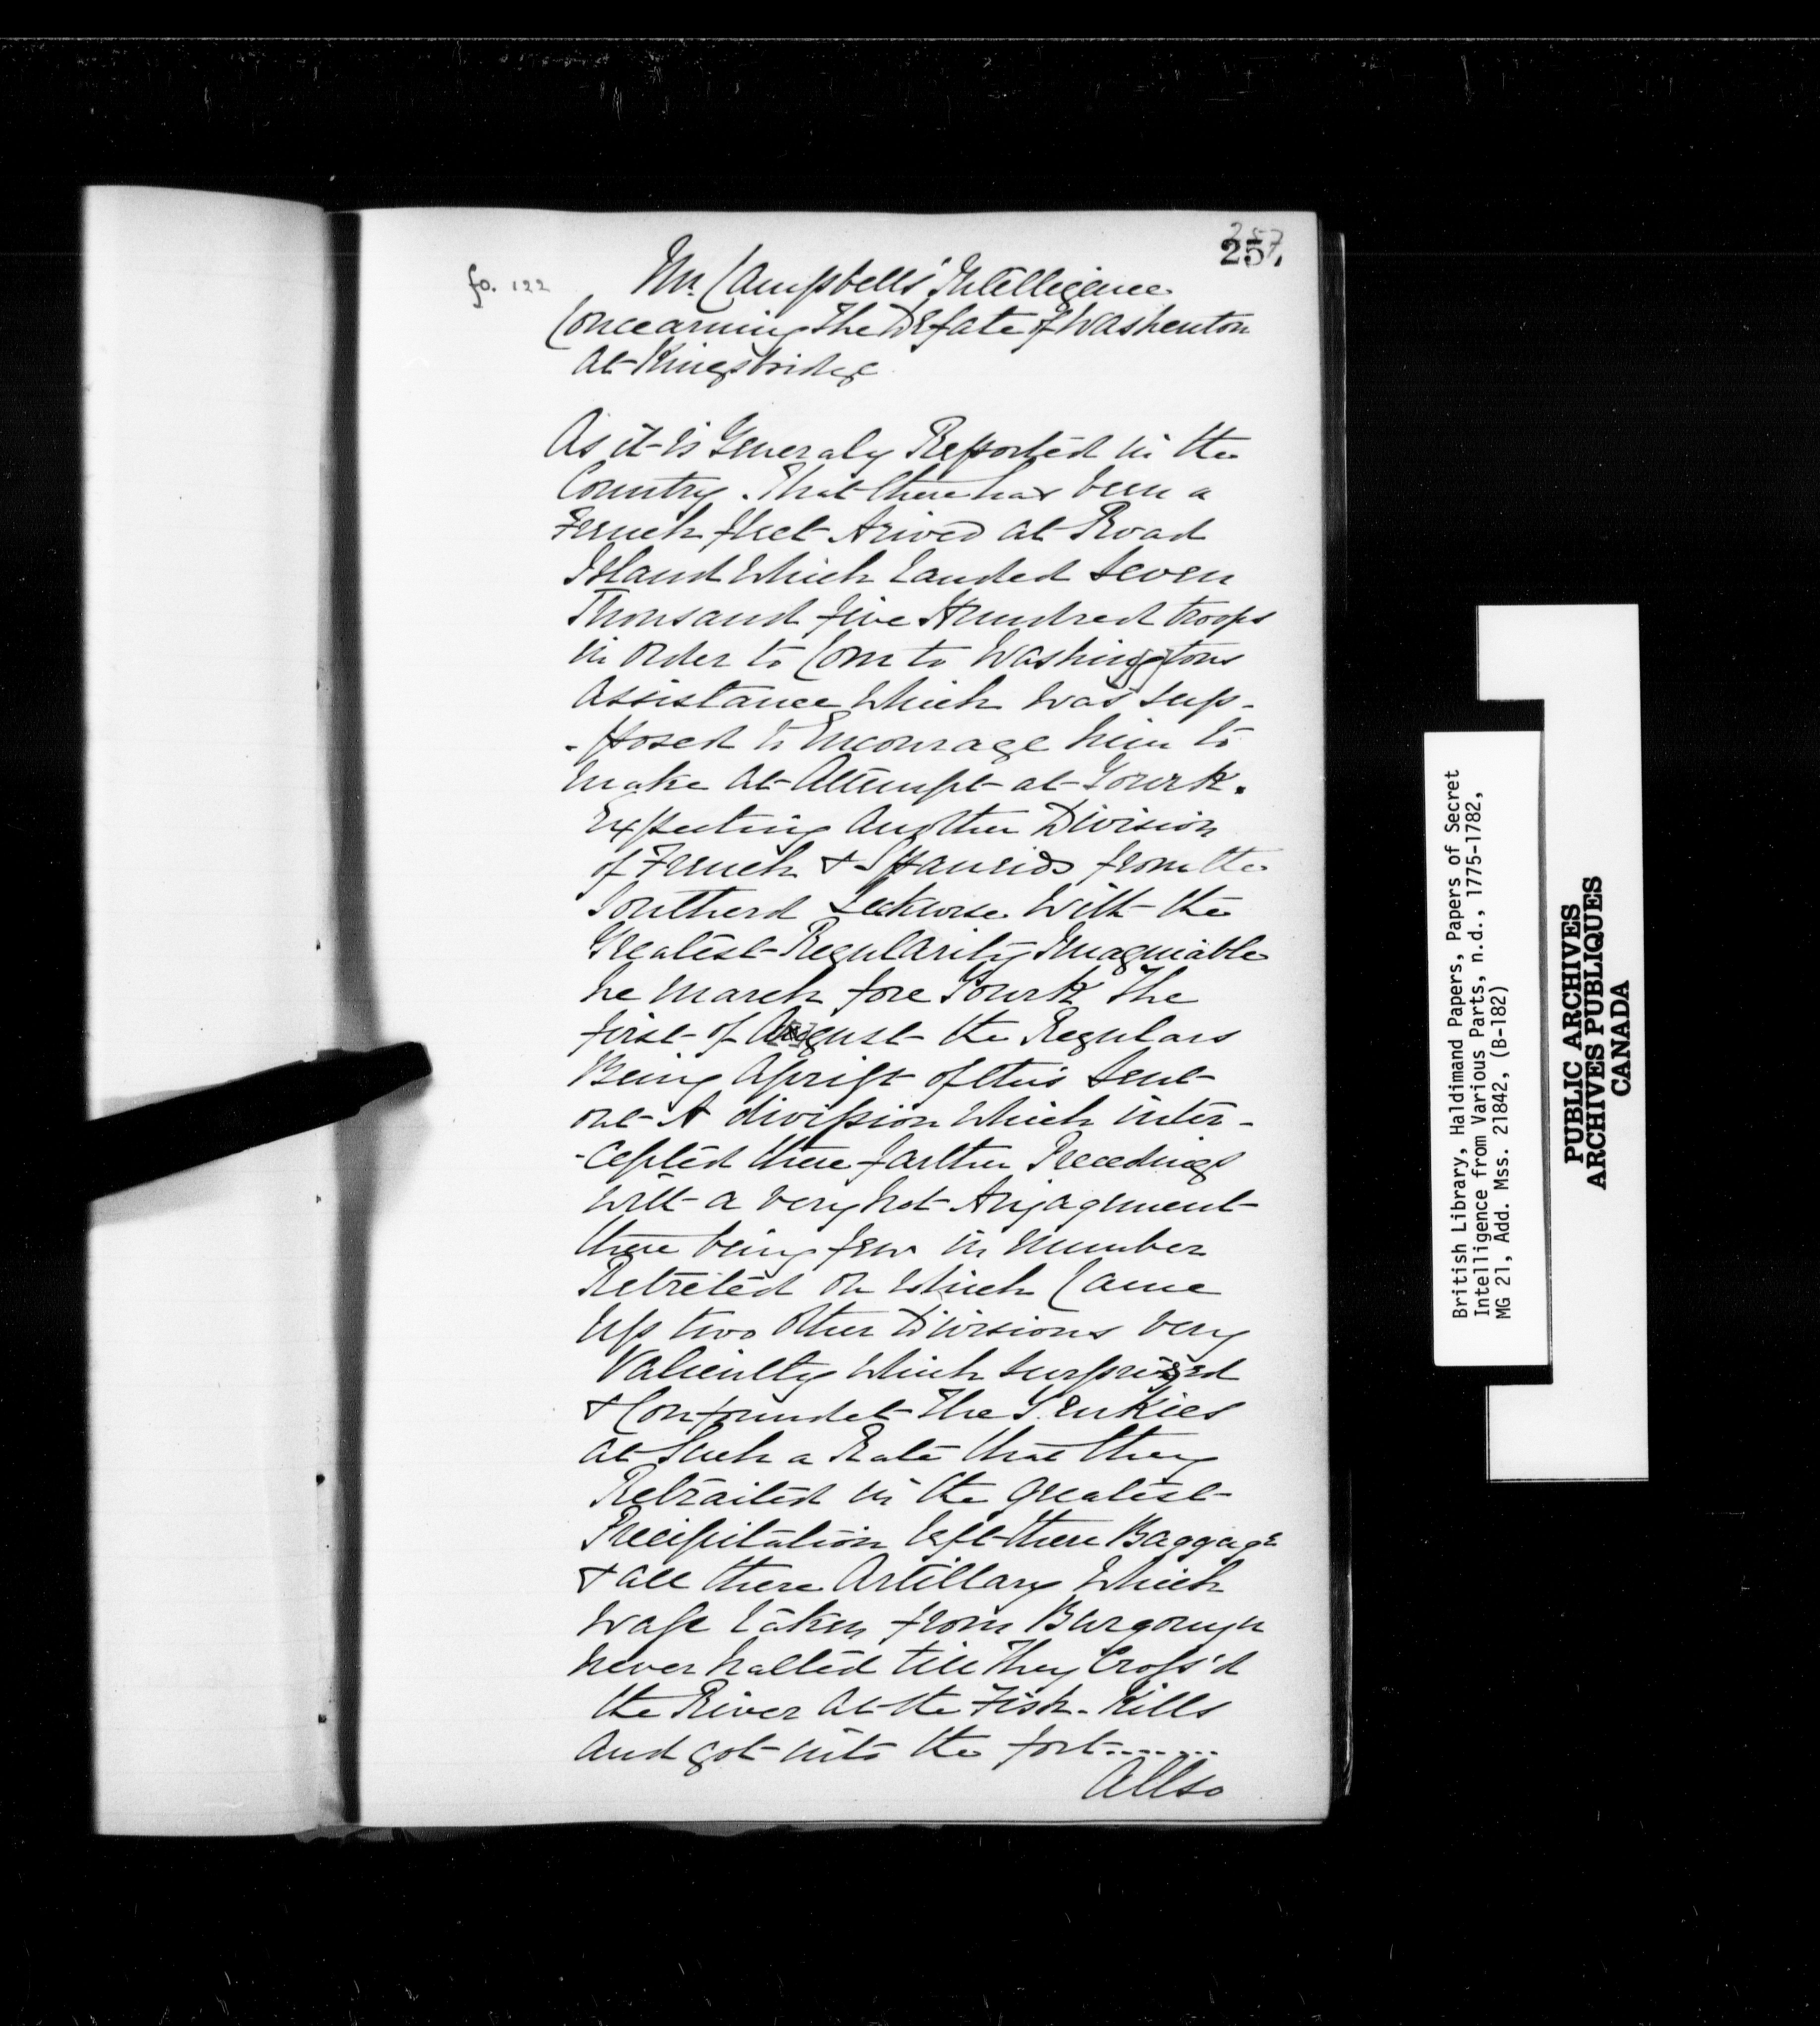 257
257.
fo. 122
Mr. Campbells' Intelligence
Concearning The Defate of Washenton
at Kingsbridge
As it is Generaly Reported in the
Country. That there has been a
Fernch fleet Arived at Road
Island Which Landed Seven
Thousand five Hundred troops
in order to Com to Washingtons
assistance Which was sup-
-posed to Encourage him to
make at Attempt at Yourk.
Expecting Another Division
of Fernch & Spanirds from the
Southerd Leekwise With the
Greatest Regularity Imaganiable
he march fore Yourk The
first of August the Regulars
Being Aprist of this Sent
out A division Which inter-
-cepted there farther Precedings
With a very hot Angagment
there being few in number
Retreted on Which Came
up two Other Divisions very
Valiently Which surprised
& Confoundet The Yenkies
at Such a Rate that they
Retraited in the greatest
Precipitation left there Baggage
& all there Artillary Which
wase taken from Burgounyn
never halted till They Cross'd
the River at the Fish-Kills
and got into the fort.......
Allso
British Library, Haldimand Papers, Papers of Secret
Intelligence from Various Parts, n.d., 1775-1782,
MG 21, Add. Mss. 21842, (B-182)
PUBLIC ARCHIVES
ARCHIVES PUBLIQUES
CANADA